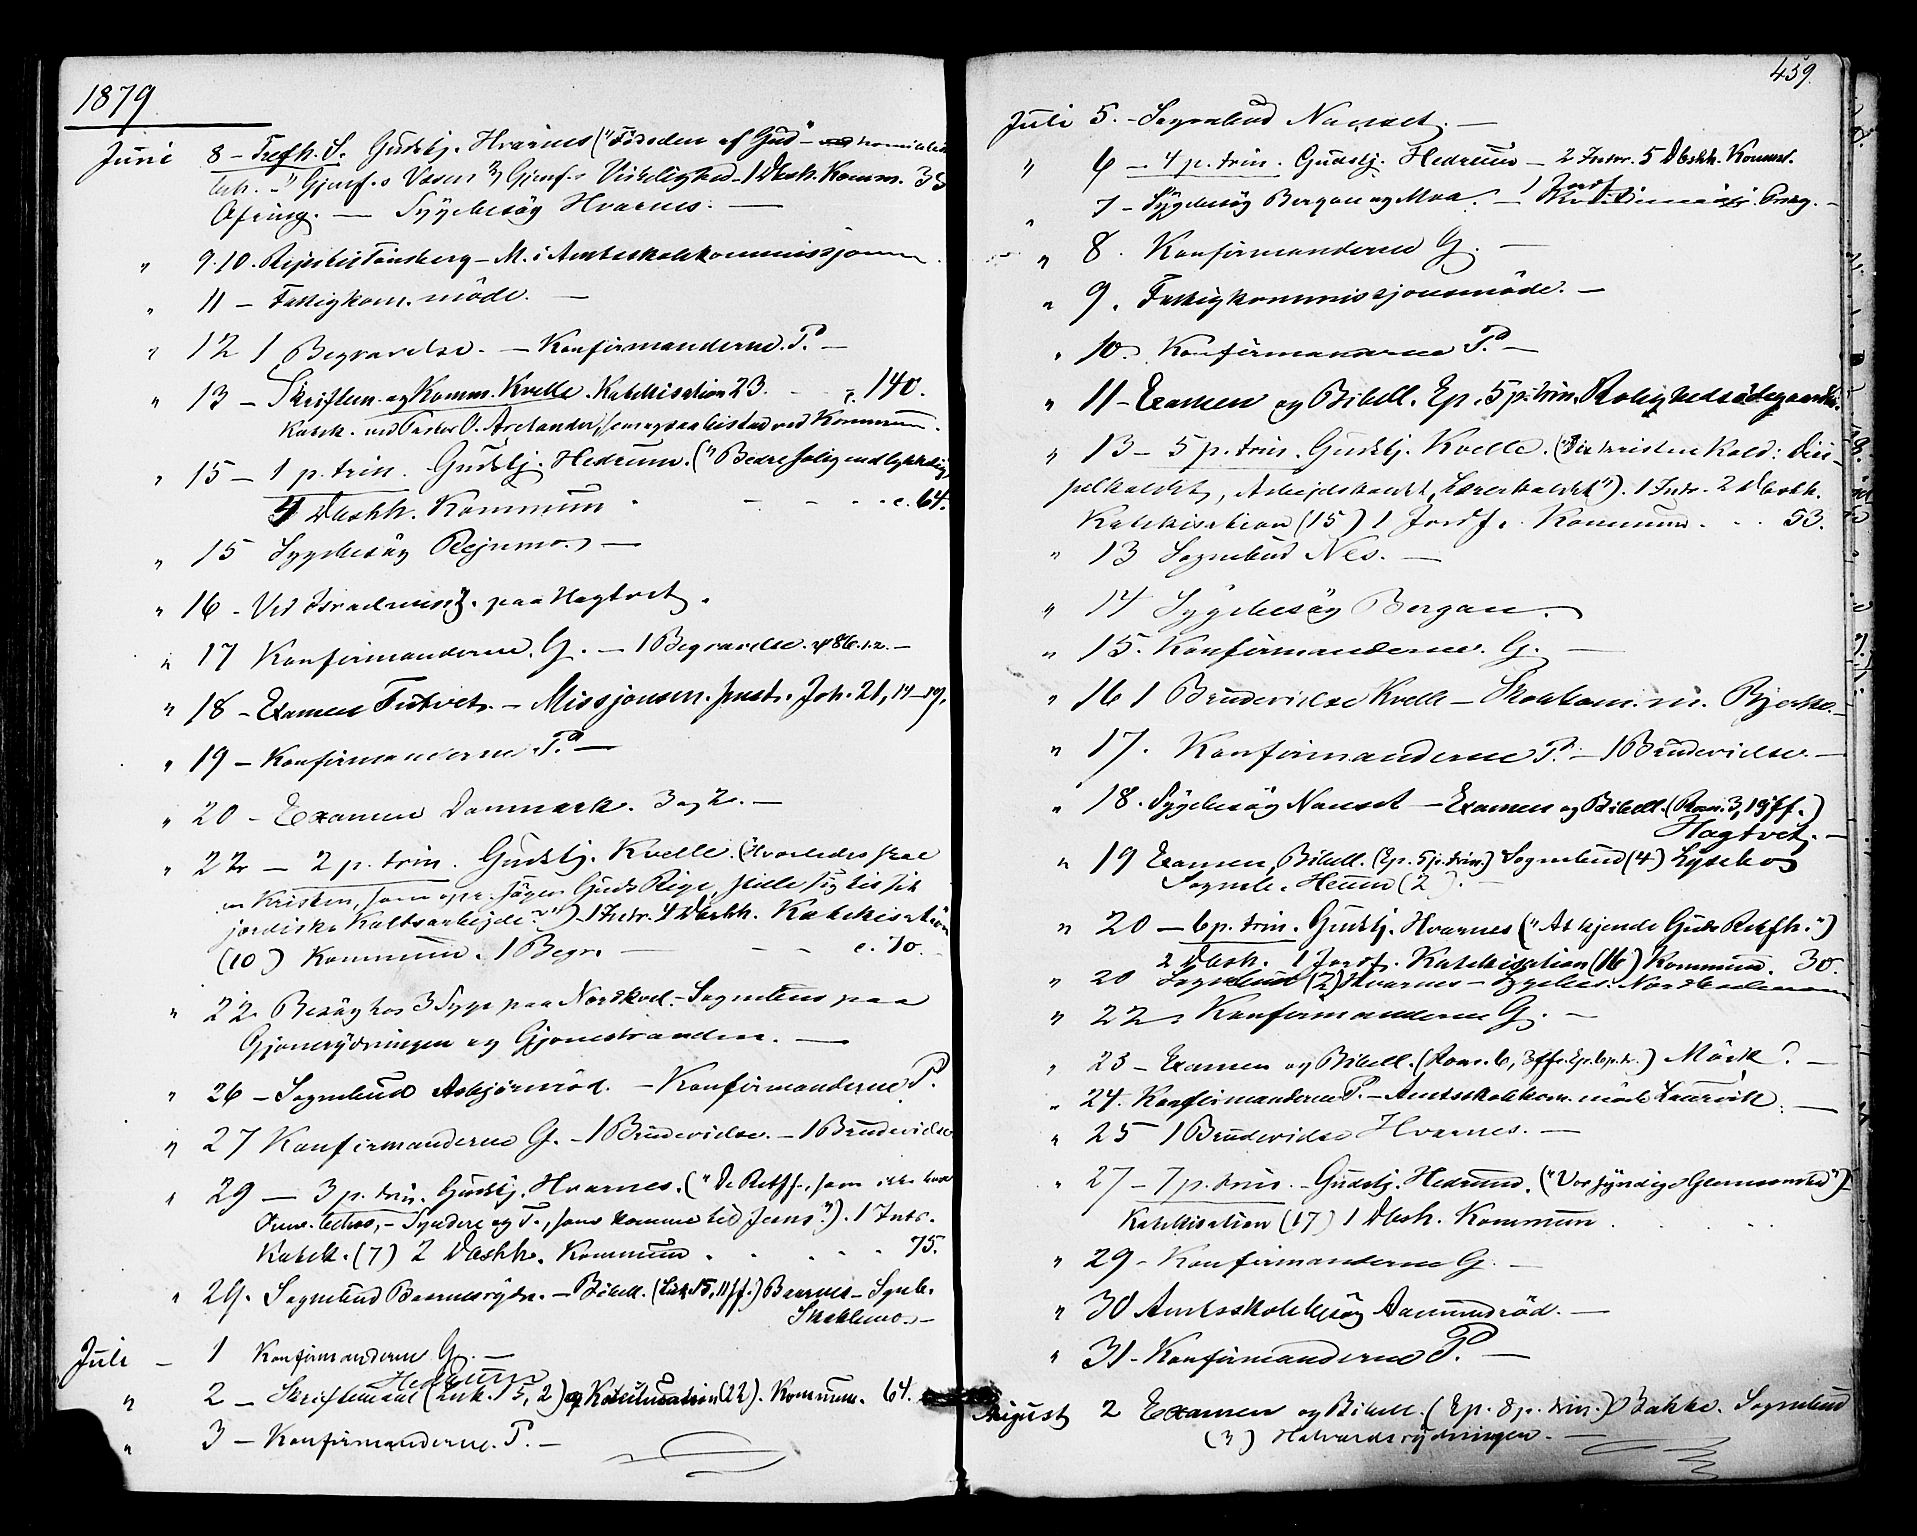 1879
Juni 8 – Trefh. S. Gudstj. Hvarnes ("Fødsden af Gud" –
Gjenf.s Væsen 2) Gjenf.s Virkelighed – 1 Dbsh. Komm. 35
Ofring. — Sygebesøg Hvarnes. —
" 9.10. Rejste til Tønsberg – M. i Amtsskolekommissjonen
" 11 – Fattigkom. møde. —
" 12 1 Begravelse. — Konfirmanderne. P. —
" 13 – Skriftem. og Komm. Kvelle. Katekisation 23. - - c. 140.
Katek. ved Pastor O. Arelander, som ogsaa bistod ved Kommun.
" 15 – 1 p. trin. Gudstj. Hedrum. ("Bedre salig end lykkelig"
4 Dbshh. Kommun - - - - c. 64.
" 15 Sygebesøg Rejumo. —
" 16 – Ved Israelmisj. paa Hagtvet.
" 17 Konfirmanderne. G. — 1 Begravelse. ψ 86.12. —
" 18 – Examen Tutvet. – Missjonsm. smst. Joh. 21, 14–19.
" 19 – Konfirmanderne P. —
" 20 – Examen Danmark. 3 og 2. —
" 22 — 2 p. trin. Gudstj. Kvelle. (Hvorledes skal
en Kristen, som opr. søger Guds Rige, stille sig til sit
jordiske Kaldsarbejde?") – 1 Intr. 4 Dbshh. Katekisation
(10) Kommun. 1 Begr. — - - c. 70.
" 22. Besøg hos 3 Syge paa Nordkvel. – Sognebud paa
Gjonerydningen og Gjonestranden. —
" 26 – Sognebud Asbjørnrød. – Konfirmanderne P.
" 27 Konfirmanderne G. – 1 Brudevielse. – 1 Brudevielse
" 29 — 3 p. trin. Gudstj. Hvarnes. ("De Retff., som ikke have
Omv. behov, – Syndere og T., som komme til Jesus".). 1 Intr.
Katek. (7) 2 Dbshh. Kommun - - - - 75.
" 29. Sognebud Baarnesrydn. – Bibell. (Luk. 15, 11 ff.) Baarnes – Sogneb.
Skaklemo. —
Juli – 1 Konfirmanderne G. —
Hedrum
" 2 – Skriftemaal (Luk. 15, 2) og Katekisation (22). Kommun. 64.
" 3 – Konfirmanderne. P. —
459.
Juli 5. – Sognebud Nanset. —
" 6 – 4 p. trin. Gudstj. Hedrum – 2 Intr. 5 Dbshh. Kommun.
" 7 – Sygebesøg Bergan og Moa. – 1 Jordf.
" 8. Konfirmanderne G. —
" 9. Fattigkommissjonsmøde. —
" 10. Konfirmanderne P. —
" 11 – Examen og Bibell. Ep. 5 p. trin. Rolighedsødegaarden.
" 13 – 5 p. trin. Gudstj. Kvelle. ("Den kristne Kald: Disi-
pelkaldet, Arbejdskaldet, Lærerkaldet"). 1 Intr. 2 Dbshh.
Katekisation (15) 1 Jordf. Kommun. . . 53.
" 13 Sognebud Nes. —
" 14 Sygebesøg Bergan. —
" 15. Konfirmanderne. G. —
" 16 1 Brudevielse Kvelle – Skolkom. m. Bjerke. —
" 17. Konfirmanderne P. – 1 Brudevielse. —
" 18. Sygebesøg Nanset – Examen og Bibell. (Rom. 3, 19 ff.)
Hagtvet. —
" 19 Examen, Bibell. (Ep. 5 p. trin.) Sognebud (4) Lysebo
Sogneb. Heum (2). —
" 20 – 6 p. trin. Gudstj. Hvarnes ("At kjende Guds Retfh.")
2 Dbsh. 1 Jordf. Katekisation (16) Kommun. 30.
" 20 Sognebud (2) Hvarnes – Sygebes.
" 22. Konfirmanderne G. —
" 23 – Examen og Bibell. (Rom. 6, 3 ff. Ep. 6 p. tr.) Mørk. —
" 24. Konfirmanderne P. – Amtsskolekom. møde Laurvik. —
" 25 1 Brudevielse Hvarnes. —
" 27 – 7 p. trin. – Gudstj. Hedrum. ("Vor syndige Glemsomhed")
Katekisation (17) 1 Dbsh. Kommun
" 29 – Konfirmanderne G. —
" 30 Amtsskolebesøg Aamundrød. —
" 31 – Konfirmanderne P. —
August 2 Examen og Bibell. (Ep. 8 p. trin.) Bakke. Sognebud
(3) Halvardsrydningen. —